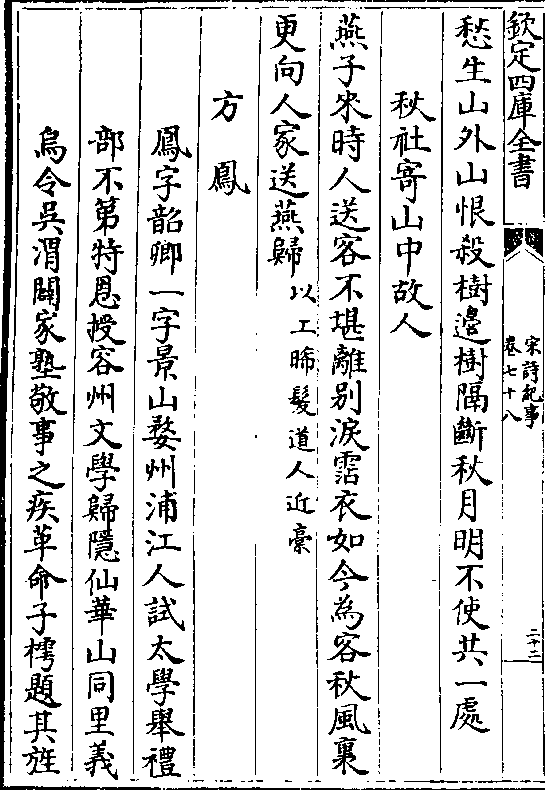 欽定四庫全書
宋詩紀事
卷七十八
二十二
愁生山外山恨殺樹邊樹隔斷秋月明不使共一處
秋社寄山中故人
燕子來時人送客不堪離别淚霑衣如今為客秋風裏
更向人家送燕歸以工晞髮道人近稾
方鳳
鳳字韶卿一字景山婺州浦江人試太學舉禮
部不第特恩授容州文學歸隱仙華山同里義
烏令吳渭闢家塾敬事之疾革命子樗題其旌